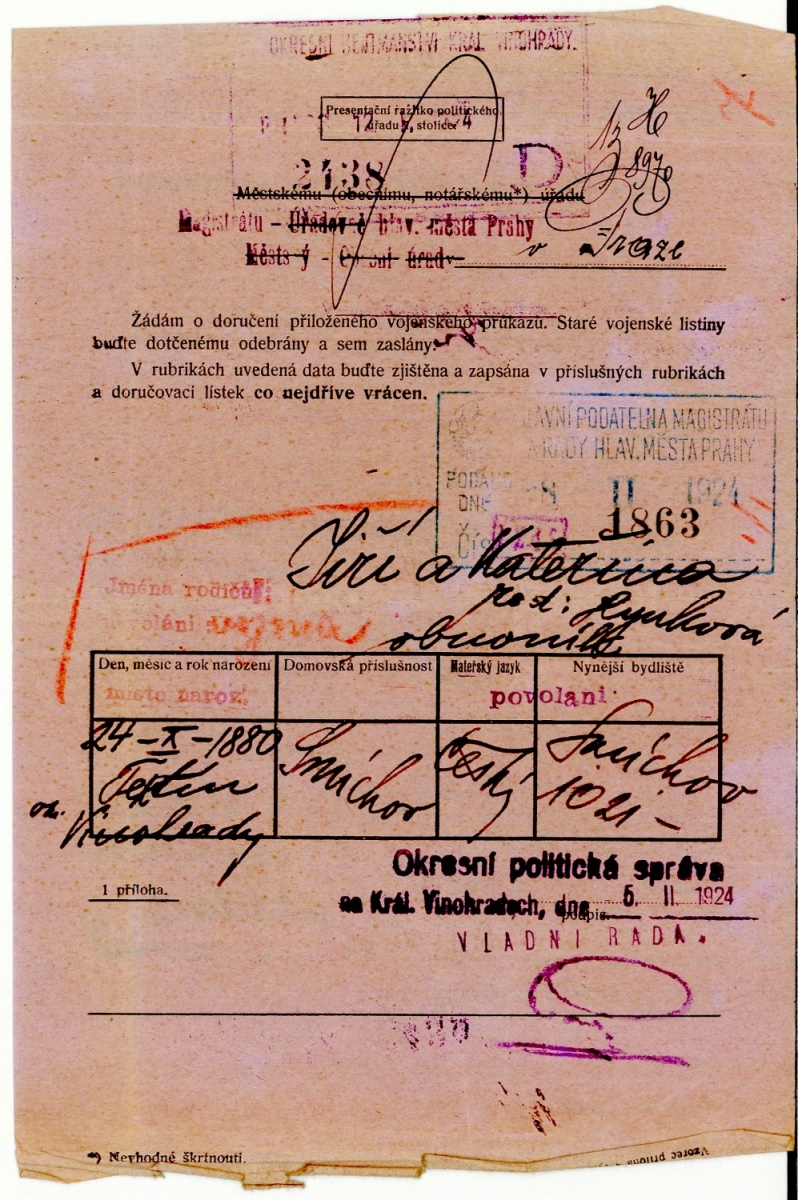 OKRESNÍ HEJTMANSTVÍ KRÁL. VINOHRADY.
Presentační razítko politického
úřadu I. stolice.
2138 D
13 H
897
Městskému (obecnímu, notářskému*) úřadu
Magistrátu – Úřadovně hlav. města Prahy
v Praze
Městský – Obecní úřad
Žádám o doručení přiloženého vojenského průkazu. Staré vojenské listiny
buďte dotčenému odebrány a sem zaslány.
V rubrikách uvedená data buďte zjištěna a zapsána v příslušných rubrikách
a doručovací lístek co nejdříve vrácen.
HLAVNÍ PODATELNA MAGISTRÁTU
A RADY HLAV. MĚSTA PRAHY
PODÁNO
DNE -8 II 1924
1863
Jiří a Kateřina
roz: Hynková
Jména rodičů:
povolání
obuvník
Den, měsíc a rok narození Domovská příslušnost Mateřský jazyk Nynější bydliště
místo naroz. povolani
24-X-1880 Smíchov český Smíchov
1021-
Vinohrady
Okresní politická správa
1 příloha.
na Král. Vinohradech, dne 5. II. 1924
podpis.
VLADNI RADA.
*) Nevhodné škrtnouti.